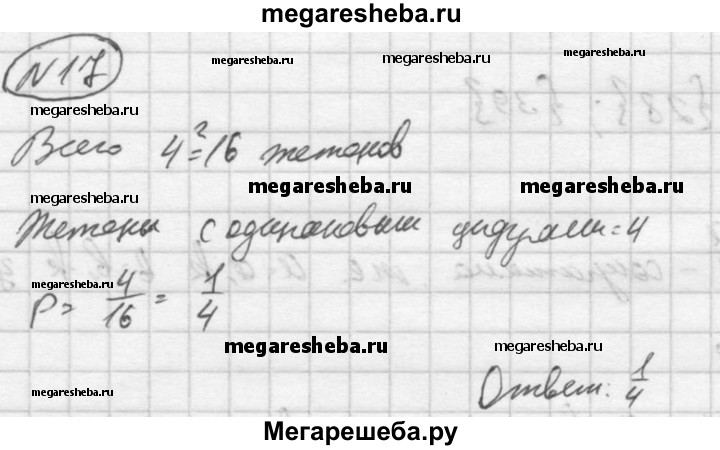 megaresheba.ru
N17
megaresheba.ru megaresheba.ru
megaresheba.ru
Всего 4²=16 жетонов
megaresheba.ru megaresheba.ru
megaresheba.ru
Жетоны с одинаковыми цифрами = 4
P = 4/16 = 1/4
megaresheba.ru megaresheba.ru
megaresheba.ru megaresheba.ru
megaresheba.ru
Ответ: 1/4
Мегарешеба.ру